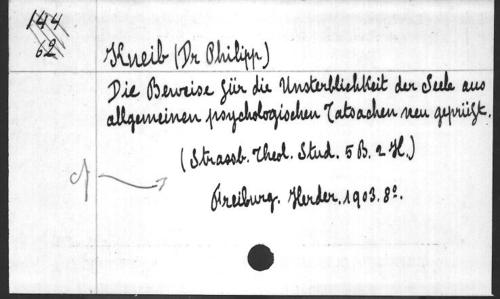 144
62
Kneib (Dr Philipp)
Die Beweise für die Unsterblichkeit der Seele aus
allgemeinen psychologischen Tatsachen neu geprüft.
(Strassb. Theol. Stud. 5 B. 2 H.)
Freiburg. Herder. 1903. 8º.